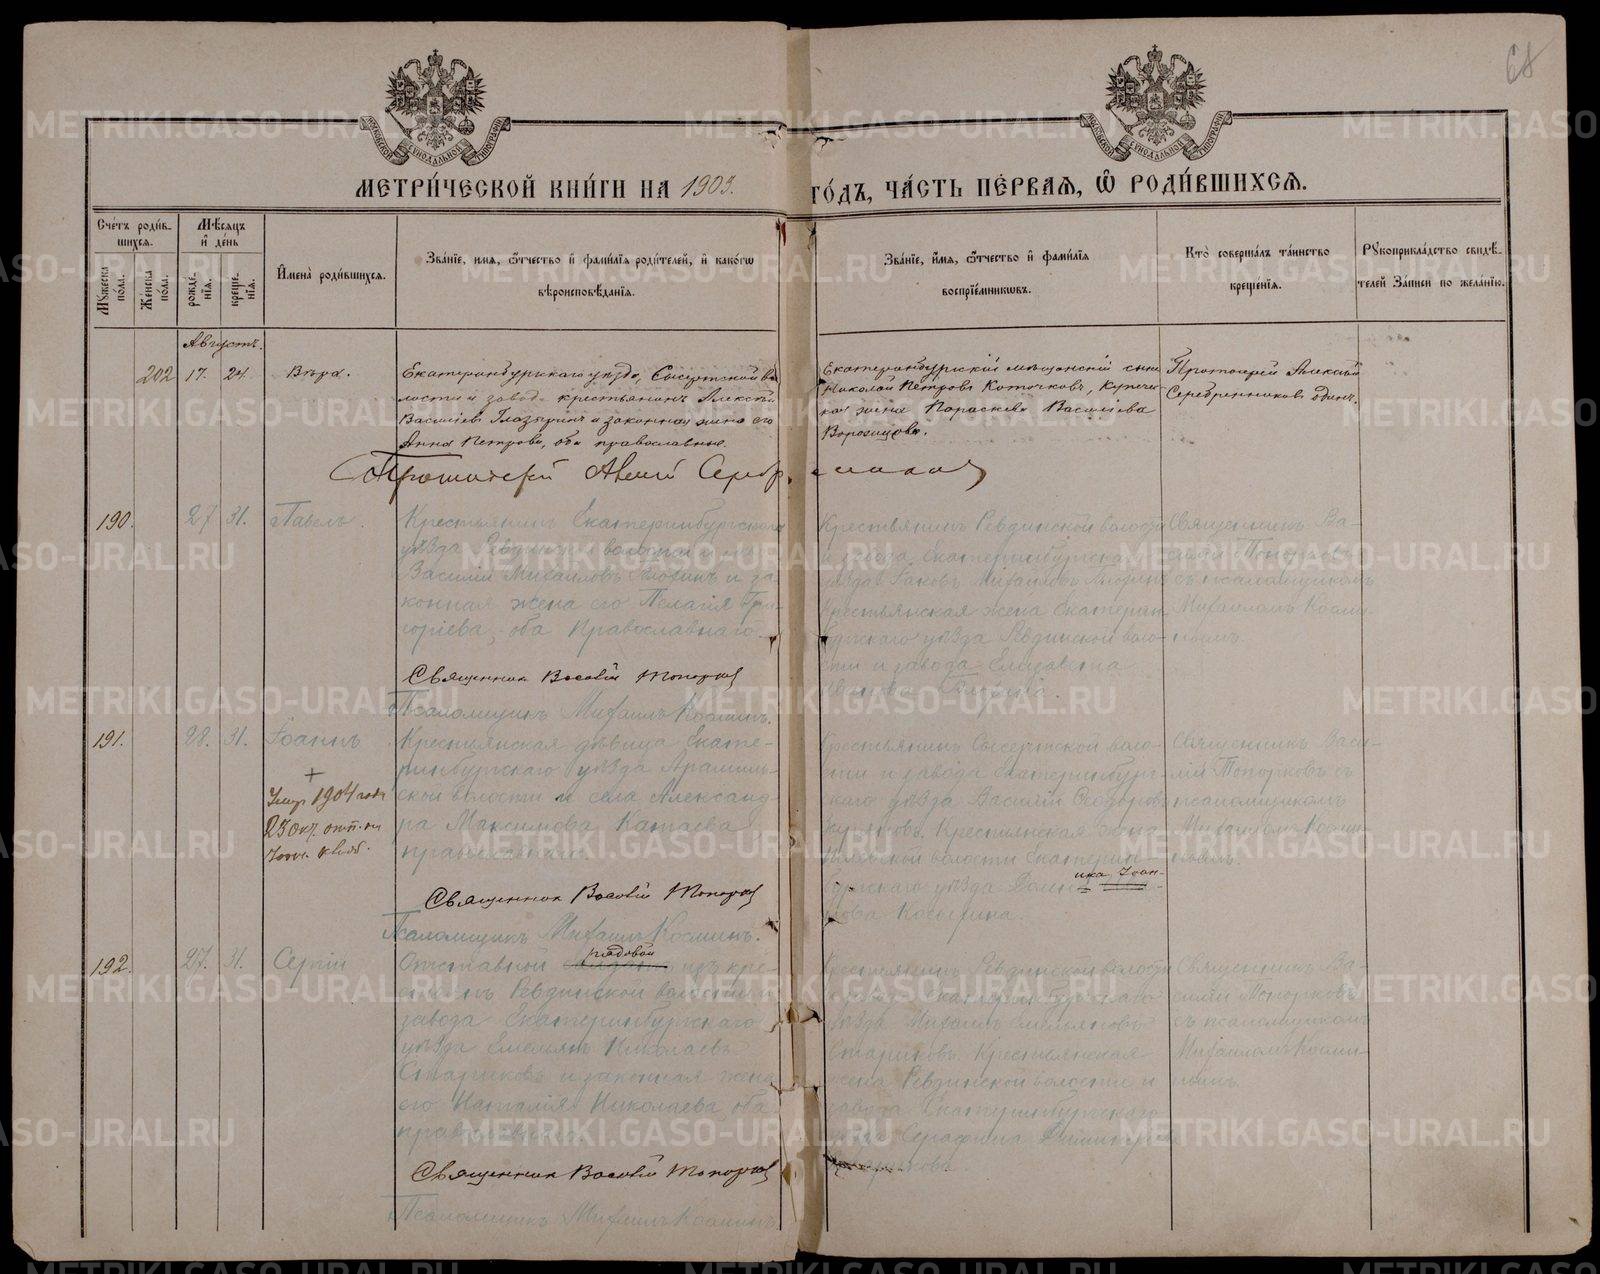 68
МОСКОВСКОЙ СѴНОДАЛЬНОЙ ТИПОГРАФІИ
МОСКОВСКОЙ СѴНОДАЛЬНОЙ ТИПОГРАФІИ
МЕТРИ́ЧЕСКОЙ КНИ́ГИ НА 1903. ГО́ДЪ, ЧА́СТЬ ПЕ́РВАѦ, Ѡ҆ РОДИ́ВШИХСѦ.
Сче́тъ роди́в-
шихсѧ.
Мꙋ́жеска по́ла.
Же́нска по́ла.
Мѣ́сѧцъ
и҆ де́нь
рожде́-
нїѧ.
креще́-
нїѧ.
И҆мена̀ роди́вшихсѧ.
Зва́нїе, и҆мѧ, ѻ҆́тчество и҆ фами́лїѧ роди́телей, и҆ како́гѡ
вѣроисповѣ́данїѧ.
Зва́нїе, и҆́мѧ, ѻ҆́тчество и҆ фами́лїѧ
воспрїе́мникѡвъ.
Кто̀ соверша́лъ та́инство
креще́нїѧ.
Рꙋкоприкла́дство свидѣ́-
телей За́писи по жела́нїю.
Августъ.
202 17. 24. Вѣра.
Екатеринбургскаго уѣзда, Сысертской во
лости и завода крестьянинъ Алексѣй
Васильевъ Глазыринъ и законная жена его
Анна Петрова, оба православные.
Екатеринбургскій мѣщанскій сынъ
Николай Петровъ Коточковъ, Купече-
ская жена Параскева Васильева
Протоіерей Алексій
Серебренниковъ одинъ.
Протоіерей Алексій Серебренниковъ
190. 27 31. Павелъ.
Крестьянинъ Екатеринбургскаго
уѣзда Ревдинской волости и
Василій Михаиловъ и за-
конная жена его Пелагія Гри-
горіева, оба Православнаго
Священникъ Василій Топорковъ
Псаломщикъ Михаилъ Косминъ.
Крестьянинъ Ревдинской волости
и завода Екатеринбургскаго
уѣзда Іаковъ Михайловъ
Крестьянская жена Екатерин-
бургскаго уѣзда Ревдинской воло-
сти и завода Елизавета
Иванова
Священникъ Ва-
силій Топорковъ
съ псаломщикомъ
Михаиломъ Косми-
нымъ.
191. 28. 31. Іоаннъ
+
Умер 1904 года
Крестьянская дѣвица Екате-
ринбургскаго уѣзда Арамиль-
ской волости и села Александ-
ра Максимова Катаева
православнаго.
Священникъ Василій Топорковъ
Псаломщикъ Михаилъ Косминъ.
Крестьянинъ Сысертской воло-
сти и завода Екатеринбург-
скаго уѣзда Василій Ѳеодоровъ
Крестьянская жена
волости Екатерин-
бургскаго уѣзда
ика Іоан-
нова Косарина.
Священникъ Васи-
лій Топорковъ съ
псаломщикомъ
Михаиломъ Косми-
нымъ.
192. 27. 31. Сергій
рядовой
Отставной изъ кре-
стьянъ Ревдинской волости и
завода Екатеринбургскаго
уѣзда Емельянъ Николаевъ
Стариковъ и законная жена
его Наталія Николаева оба
православнаго.
Священникъ Василій Топорковъ
Псаломщикъ Михаилъ Косминъ
Крестьянинъ Ревдинской волости
и завода Екатеринбургскаго
уѣзда Михаилъ Емельяновъ
Стариковъ. Крестьянская
жена Ревдинской волости и
завода Екатеринбургскаго
уѣзда Серафима
Священникъ Ва-
силій Топорковъ
съ псаломщикомъ
Михаиломъ Косми-
нымъ.
METRIKI.GASO-URAL.RU